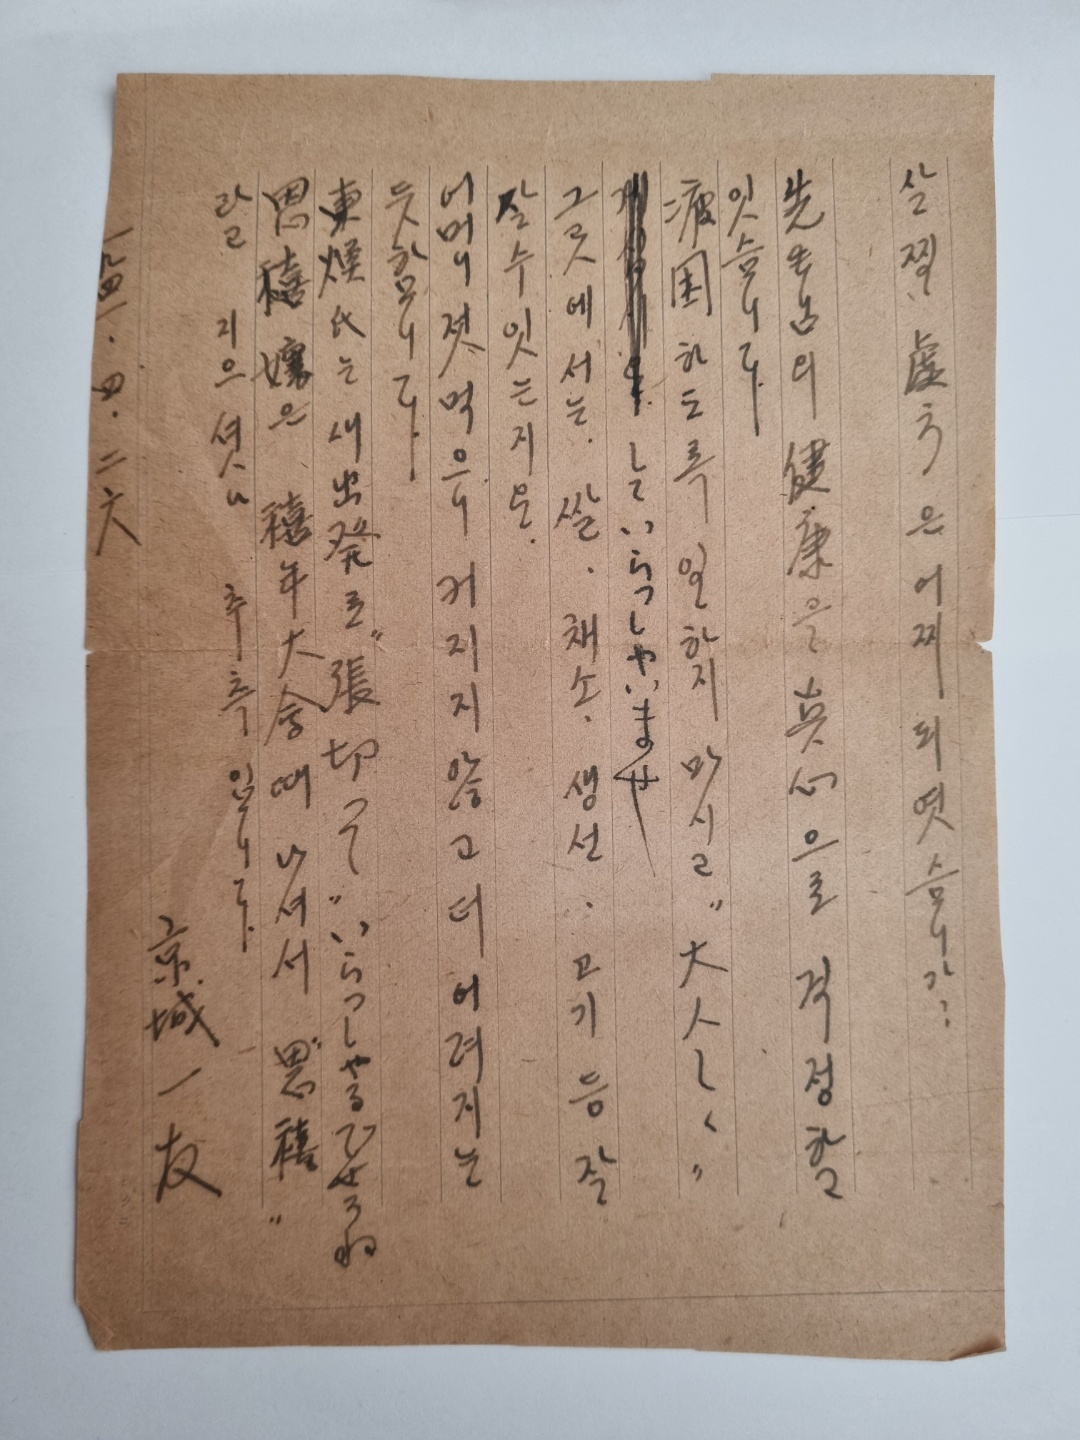 살찜, 虛弱은 어찌 되엿슴니가?
先生님의 健康을 眞心으로 걱정하고
잇슴니다.
疲困하도록 일하지 마시고 "大人しく"
していらっしゃいませ
그곳에서는. 쌀. 채소. 생선. 고기 등 잘
잘 수 잇는지 운.
어머니 젓먹은 커지지 않고 더 어려지는
듯 함니다.
東煥氏는 새 出發로 "張切って" いらっしゃるでせうね
恩禧孃은 禧年大會 때 나셔서 "恩禧"
라고 지으셧나 추측임니다.
一九四一. 四. 二六
京城 一友